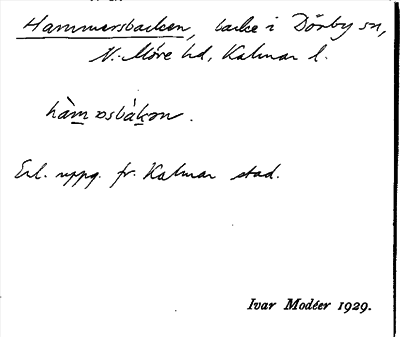 Hammersbacken, backe i Dörby sn,
N. Möre hd, Kalmar l.
hàm̲ɔsbák̲ən.
Enl. uppg. fr. Kalmar stad.
Ivar Modéer 1929.